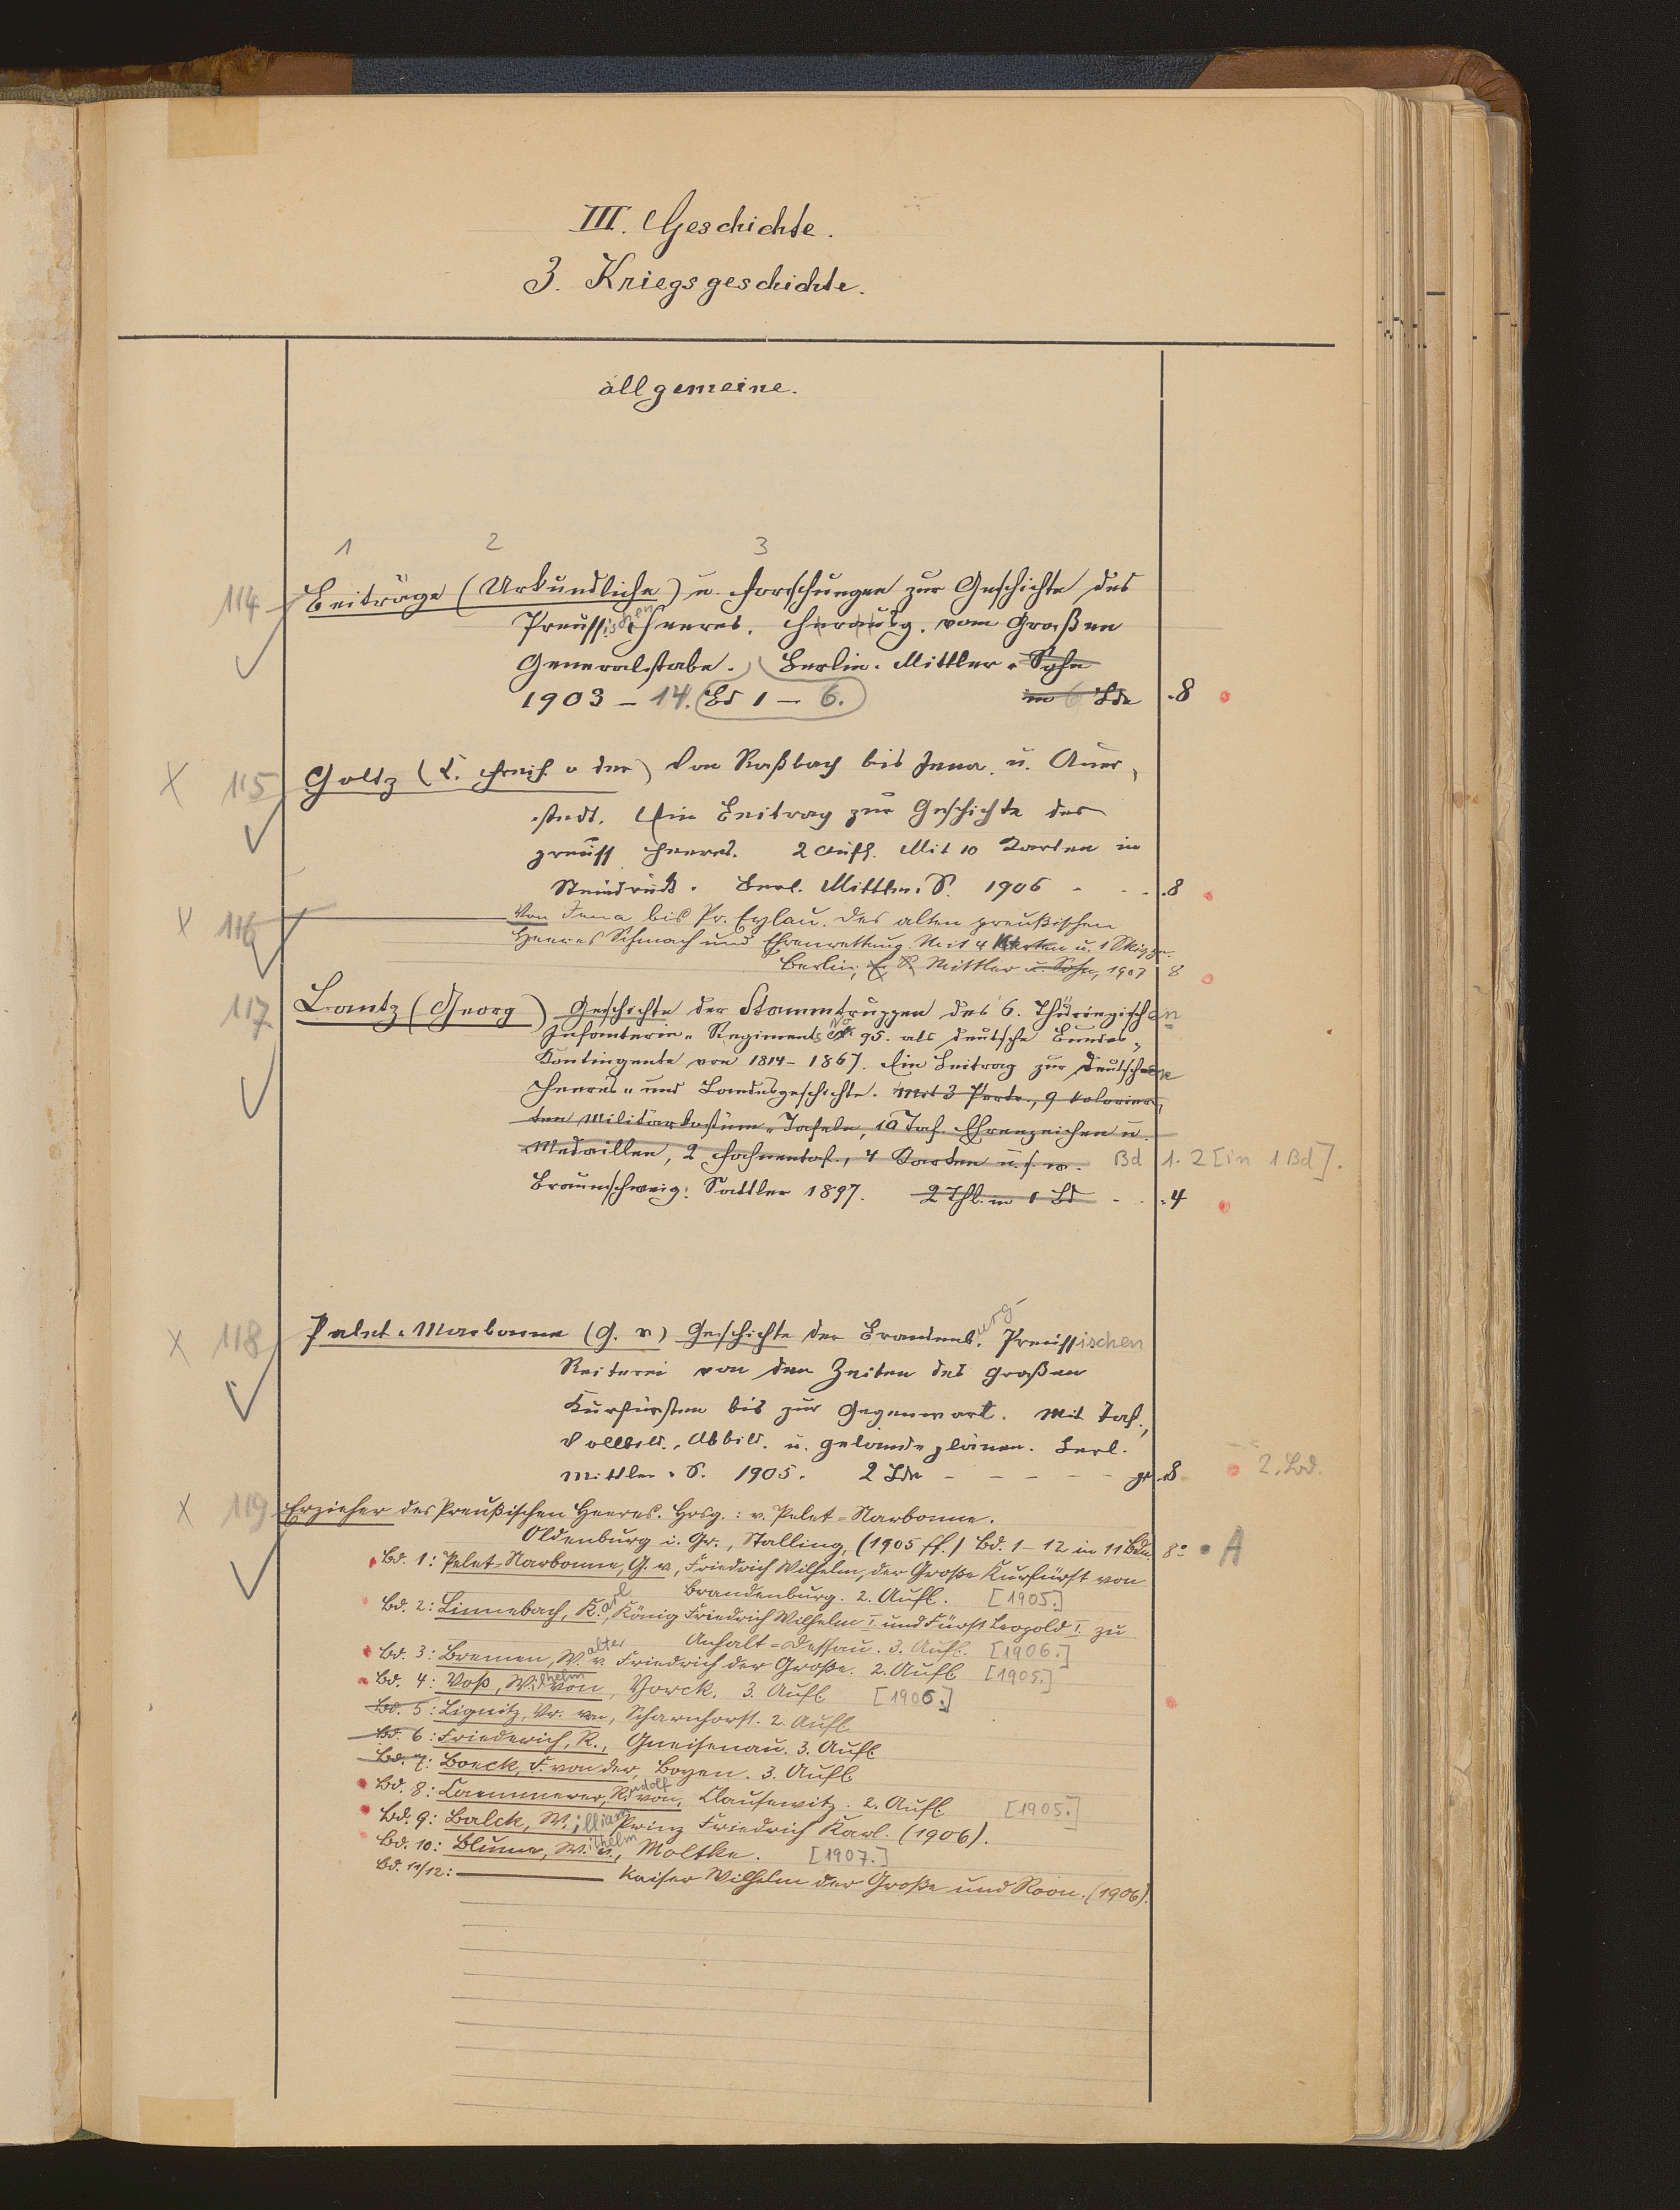 III. Geschichte.
3. Kriegsgeschichte.
allgemeine.
1 2 3
114 Beiträge (Urkundliche) u. Forschungen zur Geschichte des
Preussischen Heeres. Herausg. vom Großen
Generalstabe. Berlin. Mittler u. Sohn
1903 – 14. Bd 1 – 6. in 6 Bde 8
X 115 Goltz (C. Freih. v der) Von Roßbach bis Jena u. Auer-
stedt. Ein Beitrag zur Geschichte des
preuss Heeres. 2 Aufl. Mit 10 Karten in
Steindruck. Berl. Mittler u. S. 1906 - - - 8
X 116 ——— Von Jena bis Pr. Eylau. Des alten preußischen
Heeres Schmach und Ehrenrettung. Mit 4 Karten u. 1 Skizze.
Berlin, E. S. Mittler u. Sohn, 1907 8
117 Lantz (Georg) Geschichte der Stammtruppen des 6. Thüringischen
Infanterie-Regiments No 95. als deutsche Bundes-
Kontingente von 1814–1867. Ein Beitrag zur Deutschen
Heeres- und Landesgeschichte. Mit 3 Portr., 9 kolorier-
ten Militärkostüm-Tafeln, 10 Taf. Ehrenzeichen u.
Medaillen, 2 Fahnentaf., 4 Karten u.s.w. Bd 1. 2 [in 1 Bd].
Braunschweig: Sattler 1897. 2 Thl. in 1 Bd - - 4
X 118 Pelet-Narbonne (G. v) Geschichte der Brandenburg. Preussischen
Reiterei von den Zeiten des großen
Kurfürsten bis zur Gegenwart. Mit Taf.,
Vollbild., Abbild. u. Geländeplänen. Berl.
Mittler u. S. 1905. 2 Bde - - - - - gr 8 2. Bd.
X 119 Erzieher des Preußischen Heeres. Hrsg.: v. Pelet-Narbonne.
Oldenburg i. Gr., Stalling, (1905 ff.) Bd. 1–12 in 11 Bdn. 8° A
Bd. 1: Pelet-Narbonne, G. v, Friedrich Wilhelm, der Große Kurfürst von
Brandenburg. 2. Aufl. [1905.]
Bd. 2: Linnebach, Karl, König Friedrich Wilhelm I. und Fürst Leopold I. zu
Anhalt-Dessau. 3. Aufl. [1906.]
Bd. 3: Bremen, Walter v. Friedrich der Große. 2. Aufl [1905.]
Bd. 4: Voß, Wilhelm von, Yorck. 3. Aufl [1906.]
Bd. 5: Lignitz, Vr. von, Scharnhorst. 2. Aufl
Bd. 6: Friederich, R., Gneisenau. 3. Aufl
Bd. 7: Boeck, F. von der, Boyen. 3. Aufl
Bd. 8: Caemmerer, Rudolf von, Clausewitz. 2. Aufl. [1905.]
Bd. 9: Balck, William Prinz Friedrich Karl. (1906).
Bd. 10: Blume, Wilhelm v., Moltke. [1907.]
Bd. 11/12: ——— Kaiser Wilhelm der Große und Roon. (1906).